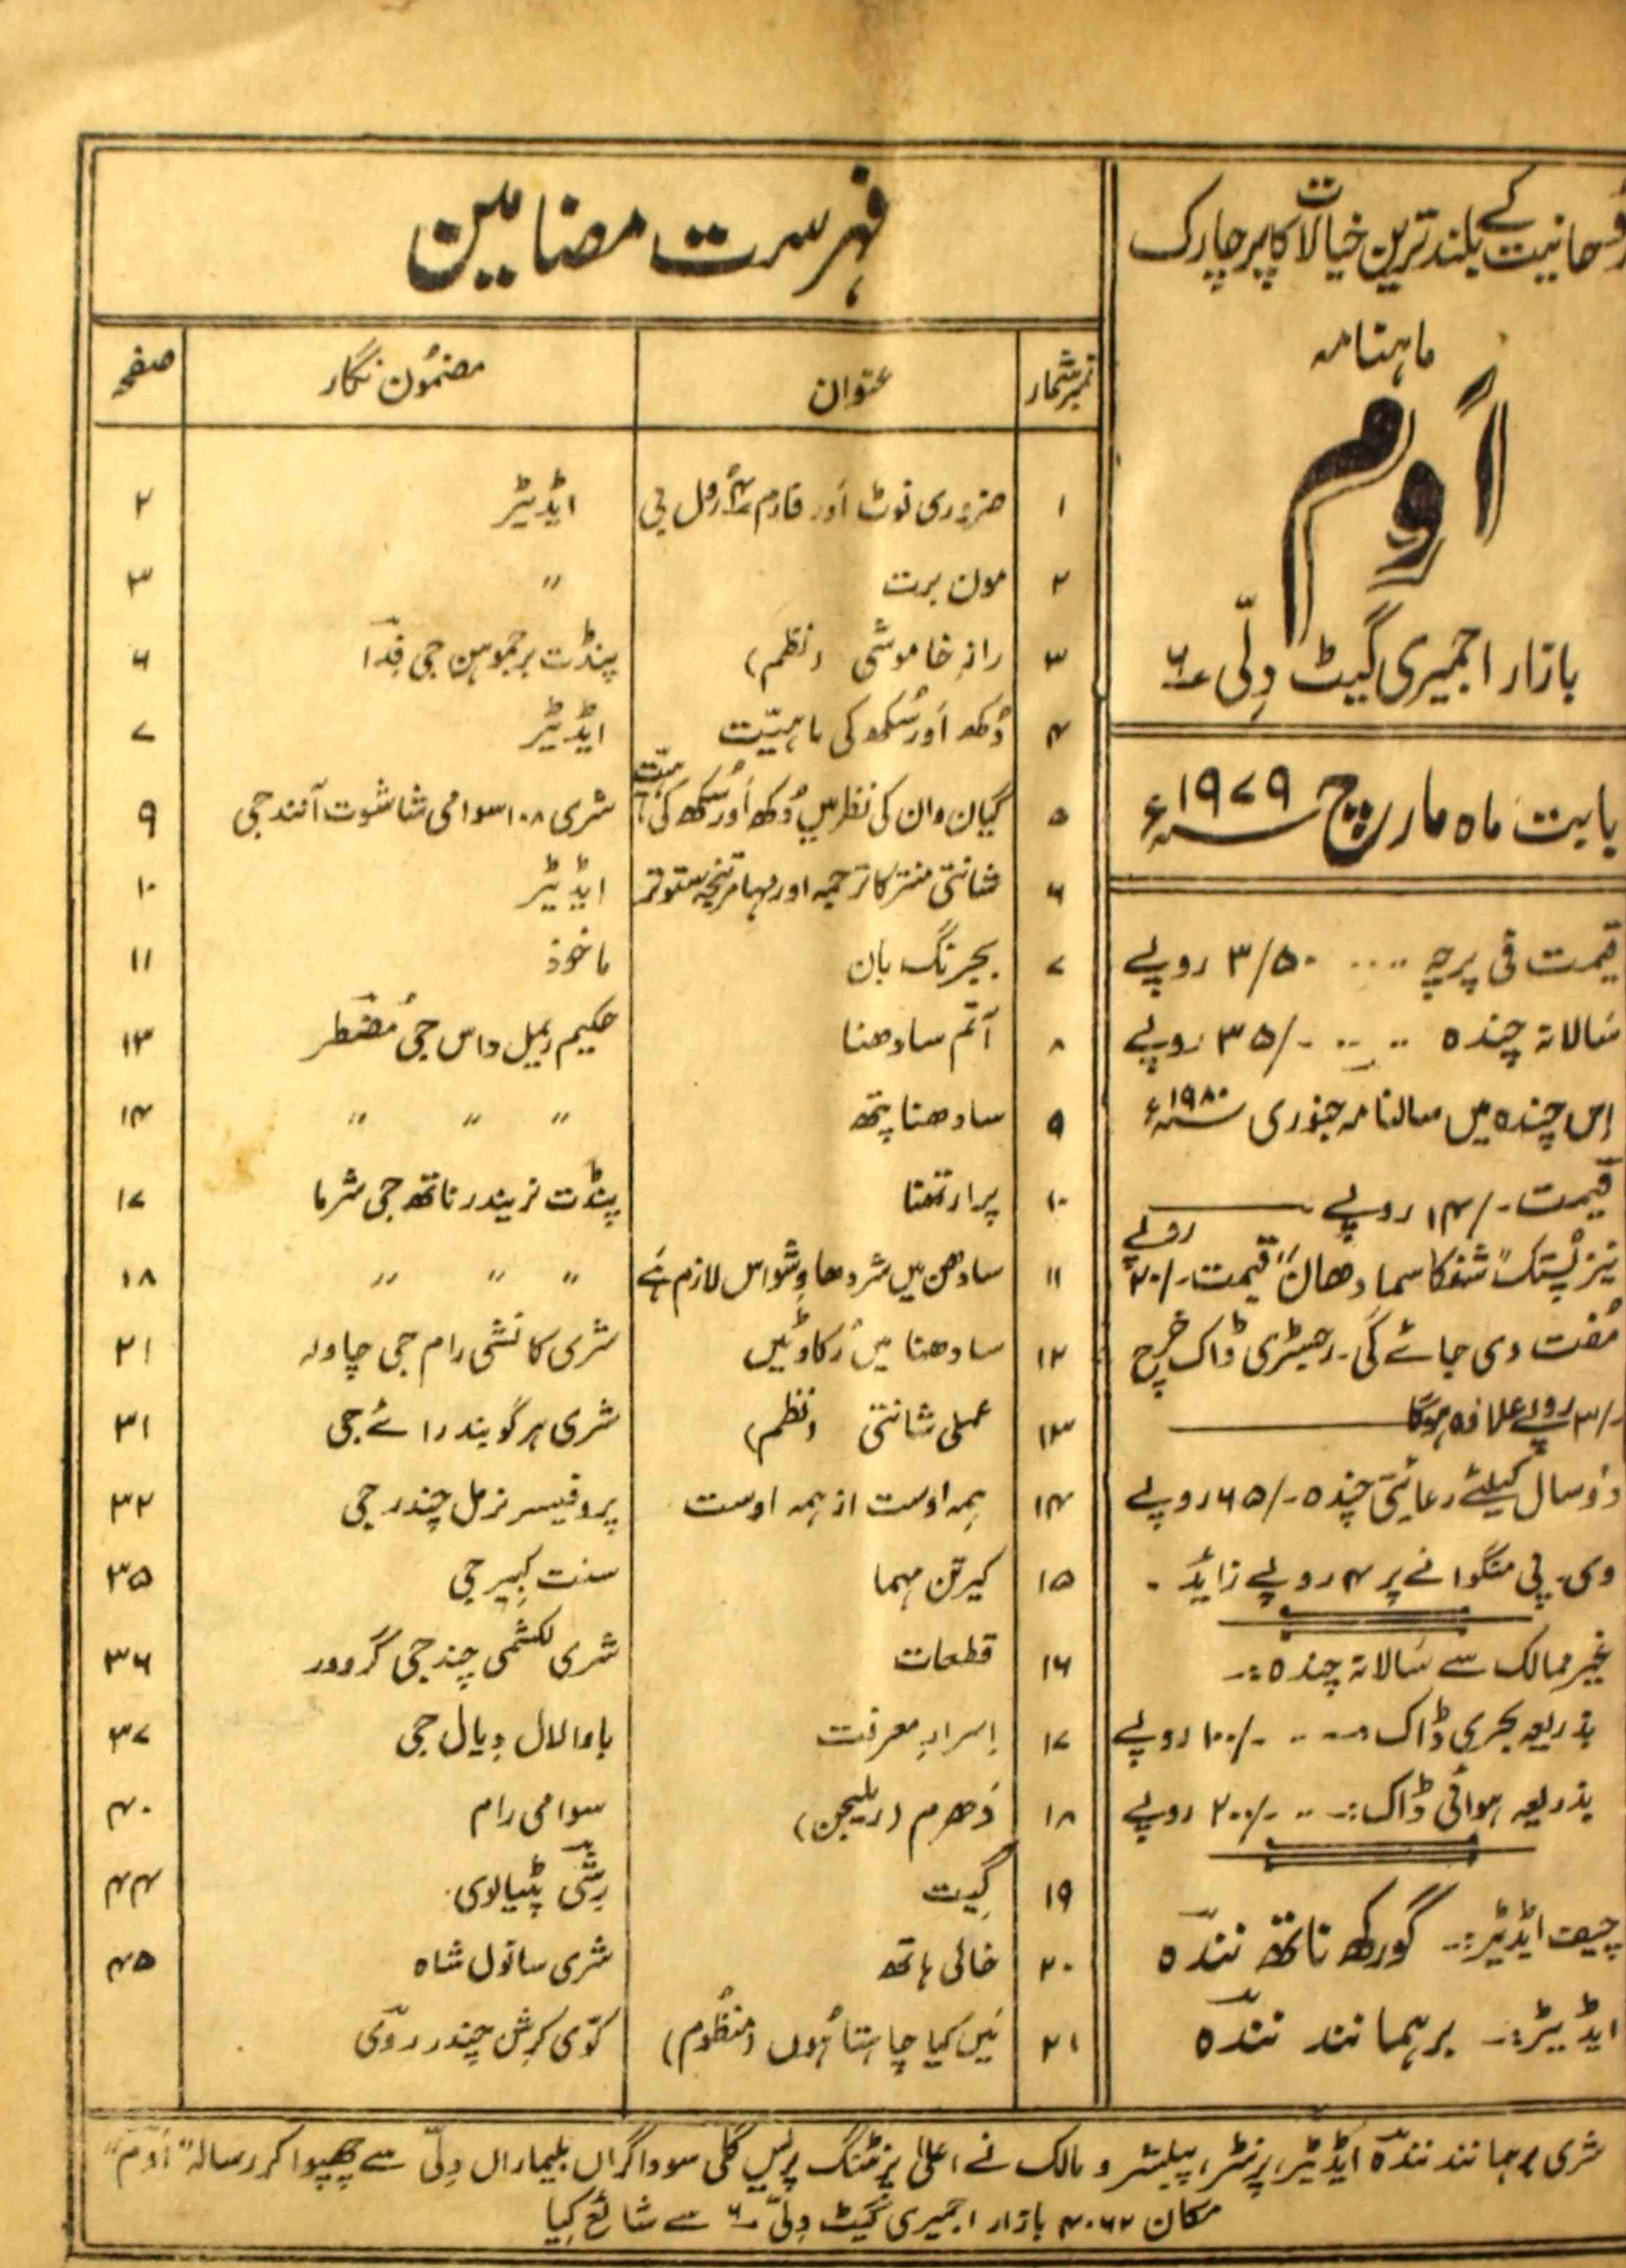 رُوحانیت کے بلند ترین خیالات کا پرچارک
ماہنامہ
اَوم
بازار اجمیری گیٹ دِلّی ۶
بابت ماہ مارچ ۱۹۷۹ء
قیمت فی پرچہ .... ۳/۵۰ روپے
سَالانہ چندہ .. .. ۳۵/- روپے
اِس چندہ میں سالنامہ جنوری ۱۹۸۰ء
قیمت ۱۴/- روپے
نیز پُستک "شنکا سمادھان" قیمت ۲۰/- روپے
مُفت دی جائے گی۔ رجسٹری ڈاک خرچ
۳/- روپے علاوہ ہوگا
دو سال کیلئے رعائتی چندہ ۶۵/- روپے
وی۔ پی منگوانے پر ۴ روپے زایدُ۔
غیر ممالک سے سَالانہ چندہ:۔
بذریعہ بحری ڈاک .... ۱۰۰/- روپے
بذریعہ ہوائی ڈاک:۔ .. ۲۰۰/- روپے
چیف ایڈیٹر:۔ گورکھ ناتھ نندہ
ایڈیٹر:۔ برہمانند نندہ
فہرست مضامین
نمبرشمار عنوان مضمُون نگار صفحہ
۱ ضروری نوٹ اَور فارم ۴ رُول بی ایڈیٹر ۲
۲ مون برت " ۳
۳ رازِ خاموشی (نظم) پنڈت برجموہن جی فِدا ۶
۴ دُکھ اَور سُکھ کی ماہیّت ایڈیٹر ۷
۵ گیان وان کی نظر میں دُکھ اَور سُکھ کی ماہیت شری ۱۰۸ سوامی شاشوت آنند جی ۹
۶ شانتی منتر کا ترجمہ اور مہامرتنجیہ ستوتر ایڈیٹر ۱۰
۷ بجرنگ بان ماخوذ ۱۱
۸ آتم سادھنا حکیم ریمل داس جی مُضطر ۱۳
۹ سادھنا پتھ " " " ۱۴
۱۰ پرارتھنا پنڈت نریندر ناتھ جی شرما ۱۷
۱۱ سادھن میں شردھا و وِشواس لازم ہَے " " " ۱۸
۱۲ سادھنا میں رُکاوٹیں شری کانشی رام جی چاولہ ۲۱
۱۳ عملی شانتی (نظم) شری ہرگوبند رائے جی ۳۱
۱۴ ہمہ اوست از ہمہ اوست پروفیسر نرمل چندر جی ۳۲
۱۵ کیرتن مہما سنت کبیر جی ۳۵
۱۶ قطعات شری لکشمی چند جی گروور ۳۶
۱۷ اِسرارِ معرفت باوا لال دیال جی ۳۷
۱۸ دَھرم (ریلیجن) سوامی رام ۴۰
۱۹ گیت رِشی پٹیالوی ۴۴
۲۰ خالی ہاتھ شری سانول شاہ ۴۵
۲۱ مَیں کیا چاہتا ہُوں (منظُوم) کوّی کرِشن چندر روّی
شری برہمانند نندہ ایڈیٹر، پرنٹر، پبلیشر و مالک نے اعلیٰ پرنٹنگ پریس گلی سوداگراں بلیماراں دِلّی سے چھپوا کر رسالہ "اوم"
مکان ۴۰۶۲ بازار اجمیری گیٹ دِلّی ۶ سے شائع کِیا